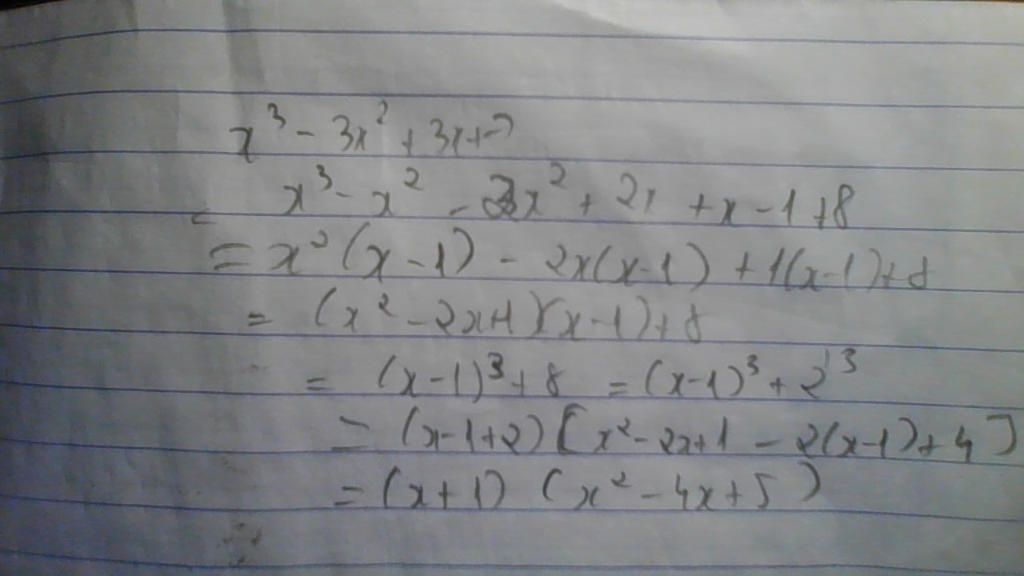 x³ - 3x² + 3x + 7
= x³ - x² - 2x² + 2x + x - 1 + 8
= x²(x-1) - 2x(x-1) + 1(x-1) + 8
= (x² - 2x + 1)(x-1) + 8
= (x-1)³ + 8 = (x-1)³ + 2³
= (x-1+2)[x² - 2x + 1 - 2(x-1) + 4]
= (x+1) (x² - 4x + 5)